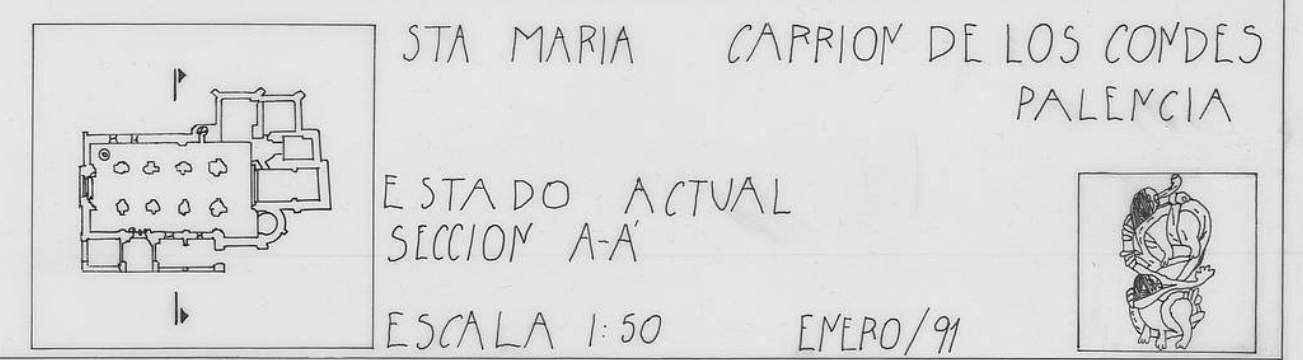 STA MARIA CARRION DE LOS CONDES
PALENCIA
ESTADO ACTUAL
SECCION A-A'
ESCALA 1:50 ENERO/91